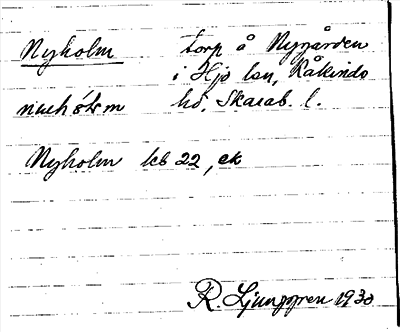 Nyholm torp å Nygården
i Hjo lsn, Kåkinds
hd, Skarab. l.
Nyholm kb 22, ek
R. Ljunggren 1930